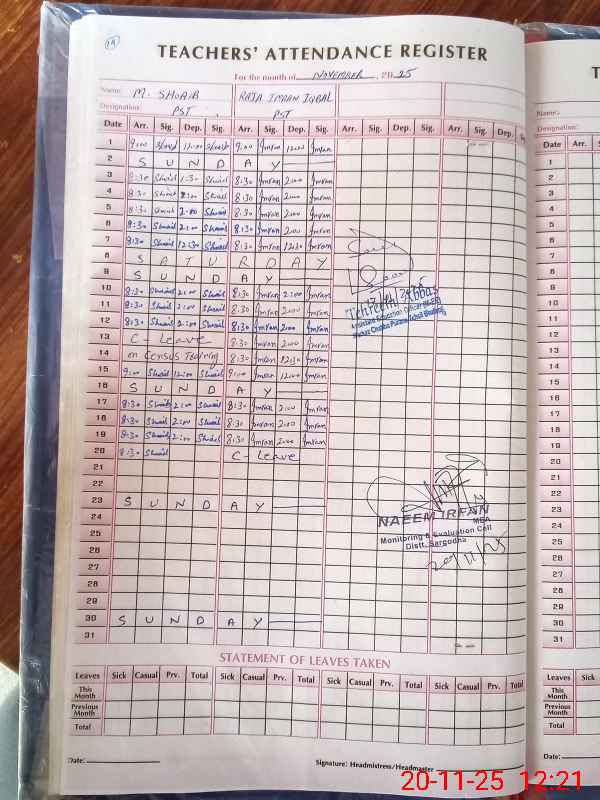 19
TEACHERS' ATTENDANCE REGISTER
For the month of NOVEMBER, 2025
Name: M. SHOAIB RAJA IMRAN IQBAL
Designation: PST PST
Date Arr. Sig. Dep. Sig. Arr. Sig. Dep. Sig. Arr. Sig. Dep. Sig. Arr. Sig. Dep. Sig.
1 9:00 Shoaib 12:00 Shoaib 9:00 Imran 12:00 Imran
2 S U N D A Y
3 8:30 Shoaib 1:30 Shoaib 8:30 Imran 2:00 Imran
4 8:30 Shoaib 2:00 Shoaib 8:30 Imran 2:00 Imran
5 8:30 Shoaib 2:00 Shoaib 8:30 Imran 2:00 Imran
6 8:30 Shoaib 2:00 Shoaib 8:30 Imran 2:00 Imran
7 8:30 Shoaib 12:30 Shoaib 8:30 Imran 12:30 Imran
8 S A T U R D A Y
9 S U N D A Y
10 8:30 Shoaib 2:00 Shoaib 8:30 Imran 2:00 Imran
11 8:30 Shoaib 2:00 Shoaib 8:30 Imran 2:00 Imran
Tehreem Abbas
Assistant Education Officer
12 8:30 Shoaib 2:00 Shoaib 8:30 Imran 2:00 Imran
13 C - Leave 8:30 Imran 2:00 Imran
14 on Census Training 8:30 Imran 12:30 Imran
15 9:00 Shoaib 12:00 Shoaib 9:00 Imran 12:00 Imran
16 S U N D A Y
17 8:30 Shoaib 2:00 Shoaib 8:30 Imran 2:00 Imran
18 8:30 Shoaib 2:00 Shoaib 8:30 Imran 2:00 Imran
19 8:30 Shoaib 2:00 Shoaib 8:30 Imran 2:00 Imran
20 8:30 Shoaib C - Leave
21
22
23 S U N D A Y
24
NAEEM IRFAN
MEA
25
Monitoring & Evaluation Cell
Distt. Sargodha
26
20/11/25
27
28
29
30 S U N D A Y
31
STATEMENT OF LEAVES TAKEN
Leaves Sick Casual Prv. Total Sick Casual Prv. Total Sick Casual Prv. Total Sick Casual Prv. Total
This Month
Previous Month
Total
Date:
Signature: Headmistress/Headmaster
T
Name:
Designation:
Date Arr. S
1
2
3
4
5
6
7
8
9
10
11
12
13
14
15
16
17
18
19
20
21
22
23
24
25
26
27
28
29
30
31
Leaves Sick
This Month
Previous Month
Total
Date:
20-11-25 12:21